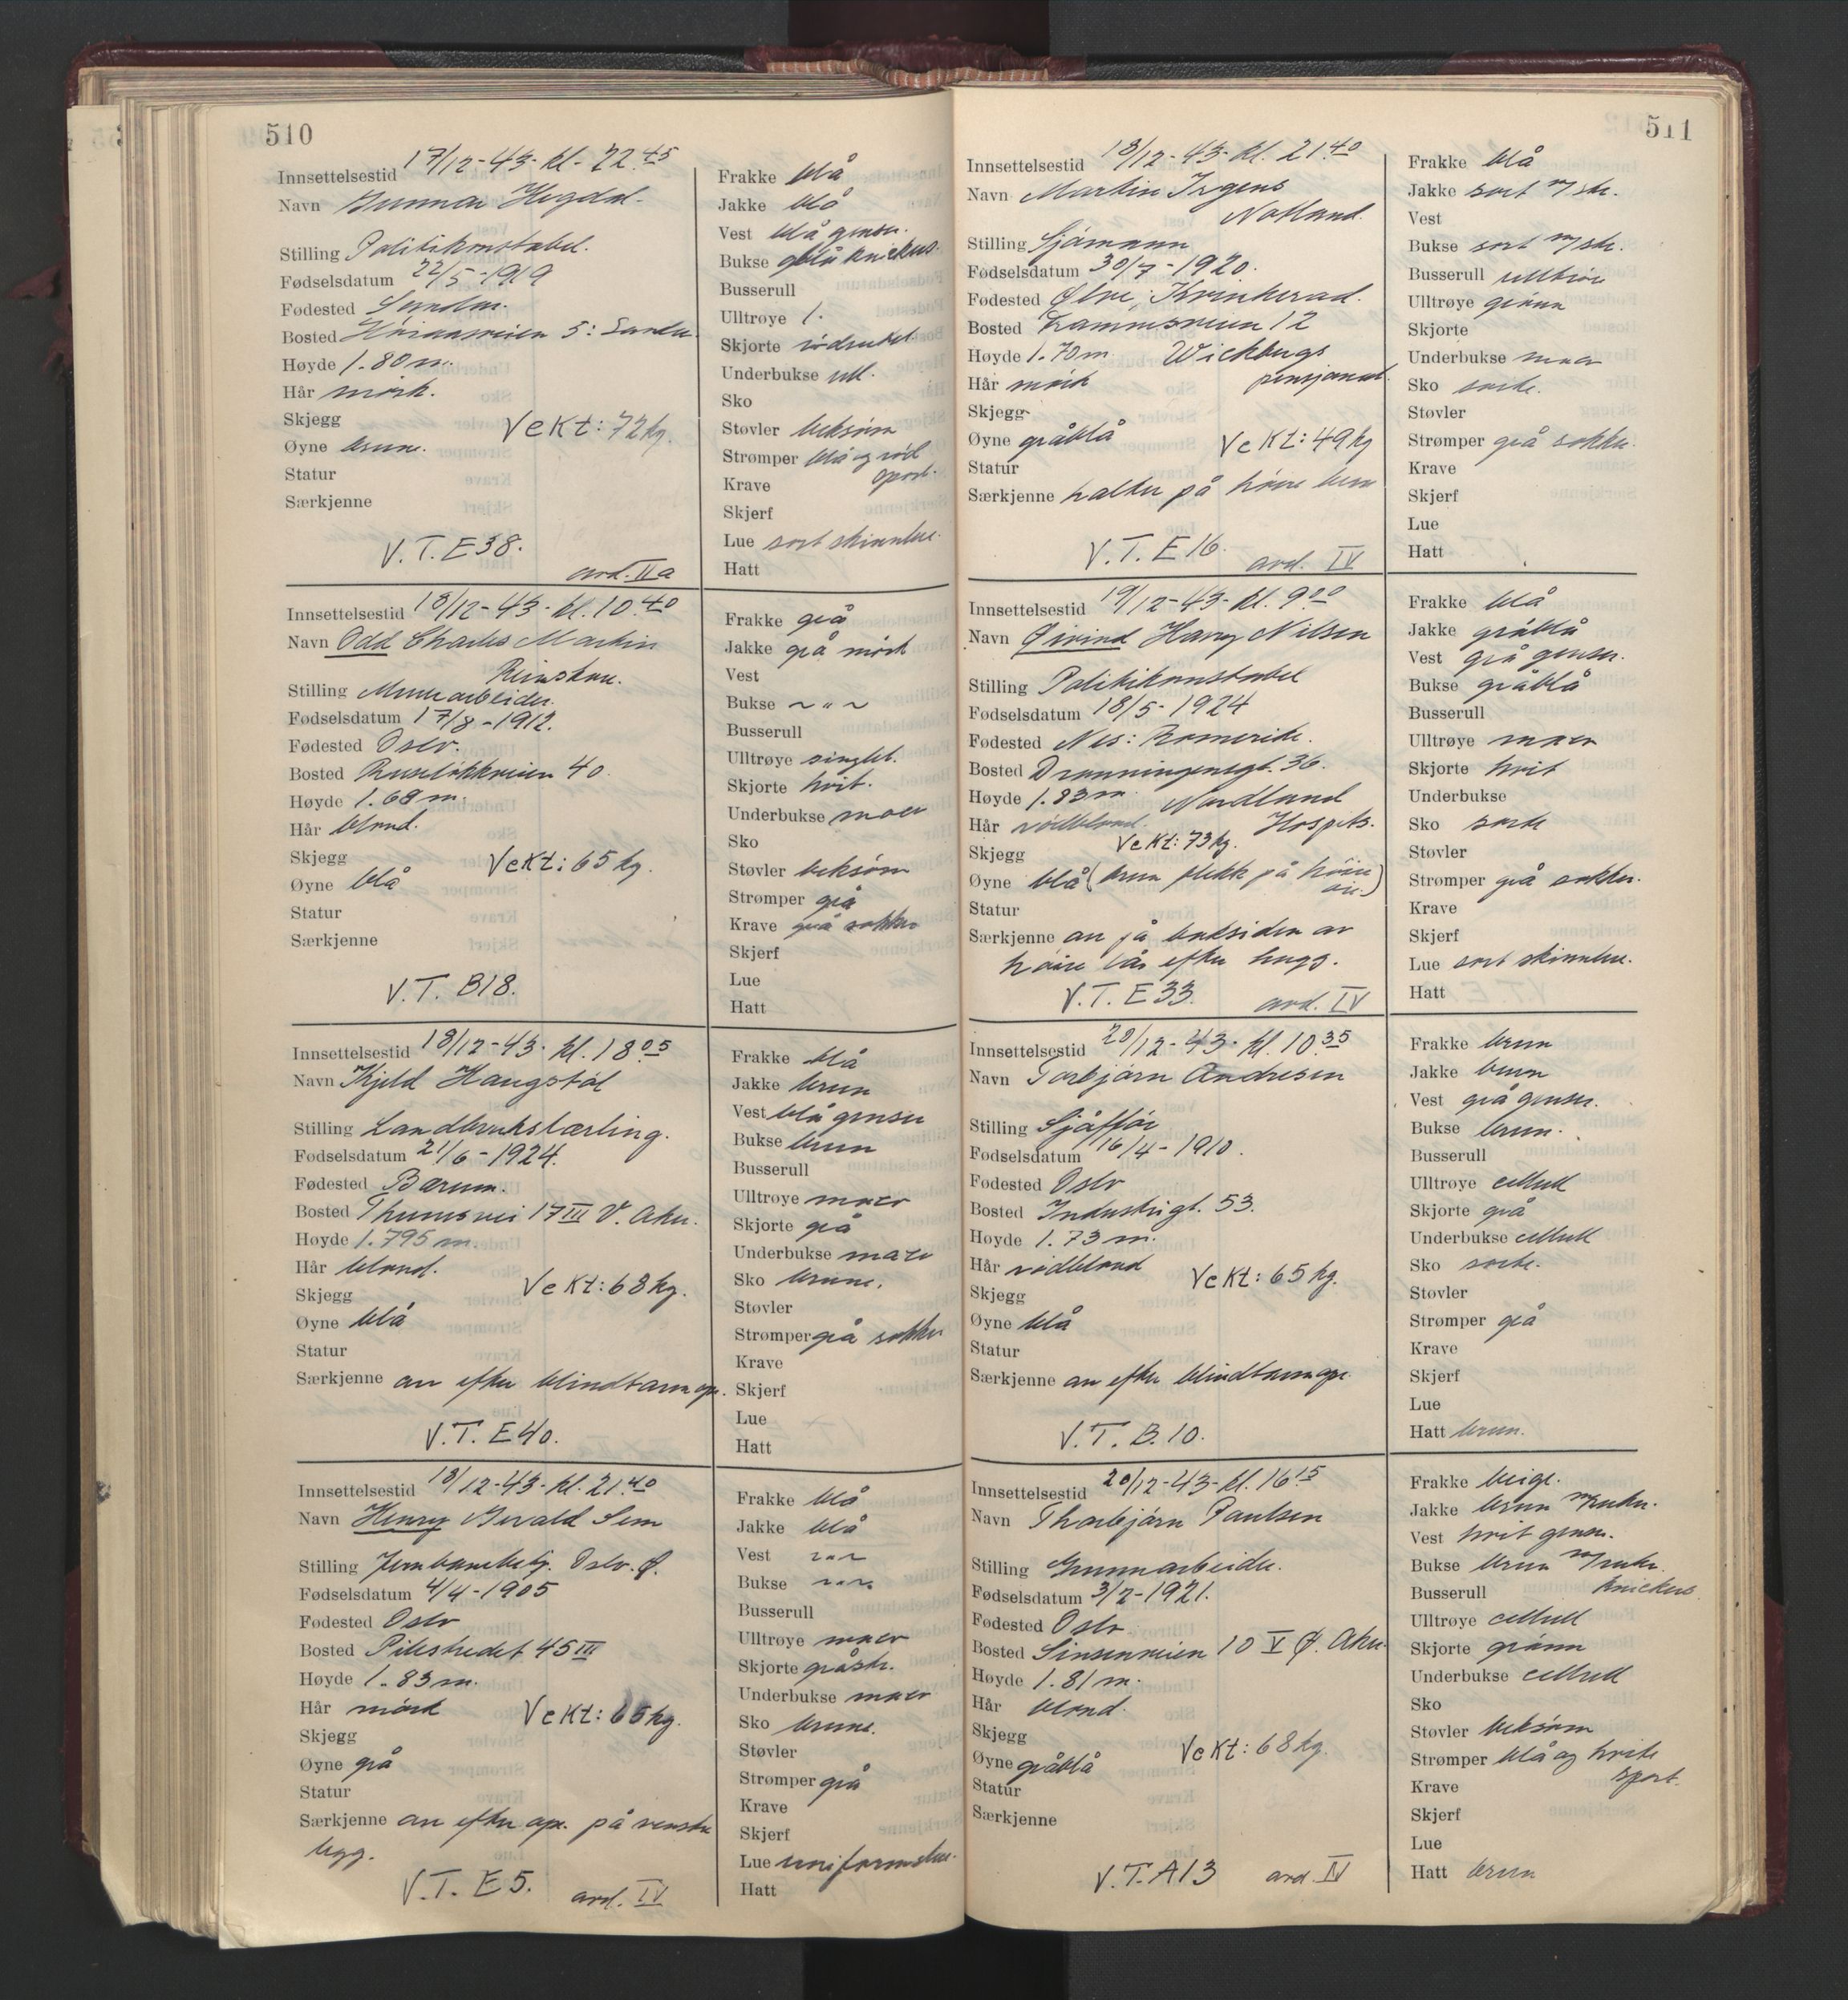 510
Innsettelsestid 17/12-43- kl. 22.45
Navn Gunnar Hegdal.
Stilling Politikonstabel.
Fødselsdatum 22/5-1919
Fødested
Bosted 5:
Høyde 1.80 m.
Hår mørk.
Skjegg
Øyne brune. Vekt: 72 kg.
Statur
Særkjenne
V.T. E 38.
avd. II a
Frakke blå
Jakke blå
Vest blå genser.
Bukse blå knickers.
Busserull
Ulltrøye 1.
Skjorte rødrutet.
Underbukse ull.
Sko
Støvler beksøm
Strømper blå og rød
sport.
Krave
Skjerf
Lue sort skinnlue.
Hatt
Innsettelsestid 18/12-43- kl. 10.40
Navn Odd Charles Martin
Stilling Murerarbeider.
Fødselsdatum 17/8-1912.
Fødested Oslo.
Bosted Ruseløkkveien 40.
Høyde 1.68 m.
Hår blond.
Skjegg Vekt: 65 kg.
Øyne blå
Statur
Særkjenne
V.T. B18.
Frakke grå
Jakke grå mørk
Vest
Bukse ~ " ~
Busserull
Ulltrøye singlet.
Skjorte hvit.
Underbukse maco
Sko
Støvler beksøm
Strømper grå
Krave grå sokker
Skjerf
Lue
Hatt
Innsettelsestid 18/12-43- kl. 18.05
Navn Kjeld Haugstøl
Stilling Landbrukslærling.
Fødselsdatum 21/6-1924.
Fødested Bærum.
Bosted Thunesvei 17 III V. Aker.
Høyde 1.795 m.
Hår blond.
Skjegg Vekt: 68 kg.
Øyne blå
Statur
Særkjenne arr efter blindtarm op.
V.T. E 40.
Frakke blå
Jakke brun
Vest blå genser
Bukse brun
Busserull
Ulltrøye maco
Skjorte grå
Underbukse maco
Sko brune.
Støvler
Strømper grå sokker
Krave
Skjerf
Lue
Hatt
Innsettelsestid 18/12-43- kl. 21.40
Navn Henry Bervald Sem
Stilling Jernbanebetj. Oslo. Ø.
Fødselsdatum 4/4-1905
Fødested Oslo
Bosted Pilestredet 45 III
Høyde 1.83 m.
Hår mørk Vekt: 65 kg.
Skjegg
Øyne grå
Statur
Særkjenne arr efter op. på venstre
legg.
V.T. E 5. avd. IV
Frakke blå
Jakke blå
Vest ~ " ~
Bukse ~ " ~
Busserull
Ulltrøye maco
Skjorte gråstr.
Underbukse maco
Sko brune.
Støvler
Strømper grå
Krave
Skjerf
Lue uniformslue.
Hatt
511
Innsettelsestid 18/12-43- kl. 21.40
Navn Martin Irgens
Natland.
Stilling Sjømann
Fødselsdatum 30/7-1920.
Fødested Ølve, Kvinherad.
Bosted 12
Høyde 1.70 m Wickbergs
Hår mørk pensjonat.
Skjegg
Øyne gråblå Vekt: 49 kg
Statur
Særkjenne halter på høire ben
V.T. E 16. avd. IV
Frakke blå
Jakke sort m/str.
Vest
Bukse sort m/str.
Busserull ulltrøie
Ulltrøye grønn
Skjorte
Underbukse maco
Sko sorte.
Støvler
Strømper grå sokker.
Krave
Skjerf
Lue
Hatt
Innsettelsestid 19/12-43- kl. 9.00
Navn Øivind Harry Nilsen
Stilling Politikonstabel
Fødselsdatum 18/5-1924
Fødested Nes: Romerike.
Bosted Dronningensgt. 36.
Høyde 1.83 m. Nordland
Hår rødblond. Hospits.
Skjegg Vekt: 73 kg.
Øyne blå (brun flekk på høire
øie.)
Statur
Særkjenne arr på baksiden av
høire lår efter hugg.
V.T. E 33. avd. IV
Frakke blå
Jakke gråblå
Vest grå genser.
Bukse gråblå
Busserull
Ulltrøye maco
Skjorte hvit
Underbukse
Sko sorte
Støvler
Strømper grå sokker.
Krave
Skjerf
Lue sort skinnlue.
Hatt
Innsettelsestid 20/12-43- kl. 10.35
Navn Torbjørn Andresen
Stilling Sjåffør
Fødselsdatum 16/4-1910.
Fødested Oslo
Bosted Industrigt. 53.
Høyde 1.73 m.
Hår rødblond Vekt: 65 kg.
Skjegg
Øyne blå
Statur
Særkjenne arr efter blindtarm op.
V.T. B.10.
Frakke brun
Jakke brun
Vest grå genser.
Bukse brun.
Busserull
Ulltrøye cellull
Skjorte grå
Underbukse cellull
Sko sorte.
Støvler
Strømper grå
Krave
Skjerf
Lue
Hatt brun.
Innsettelsestid 20/12-43- kl. 16.15
Navn Thorbjørn Paulsen
Stilling Grunnarbeider.
Fødselsdatum 3/2-1921.
Fødested Oslo
Bosted Sinsenveien 10 V Ø. Aker
Høyde 1.81 m.
Hår blond.
Skjegg Vekt: 68 kg.
Øyne gråblå
Statur
Særkjenne
V.T. A13 avd. IV
Frakke beige.
Jakke brun m/ruter.
Vest hvit genser.
Bukse brun m/ruter
knickers
Busserull
Ulltrøye cellull
Skjorte grønn
Underbukse cellull
Sko
Støvler beksøm
Strømper blå og hvite
sport.
Krave
Skjerf
Lue
Hatt brun